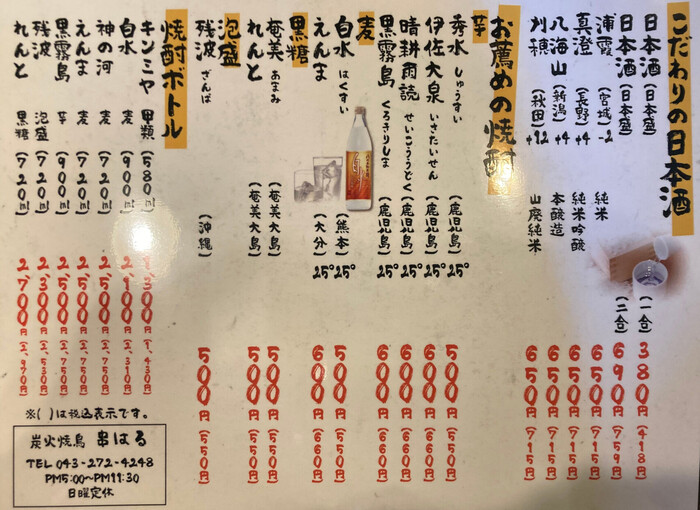 こだわりの日本酒
日本酒(日本盛) (一合) 380円 (418円)
日本酒(日本盛) (二合) 690円 (759円)
浦霞(宮城)-2 純米 650円 (715円)
真澄(長野)+4 純米吟醸 650円 (715円)
八海山(新潟)+4 本醸造 650円 (715円)
刈穂(秋田)+12 山廃純米 650円 (715円)
お薦めの焼酎
芋
秀水 しゅうすい (鹿児島) 25° 500円 (550円)
伊佐大泉 いさたいせん (鹿児島) 25° 600円 (660円)
晴耕雨読 せいこううどく (鹿児島) 25° 600円 (660円)
黒霧島 くろきりしま (鹿児島) 25° 600円 (660円)
麦
白水 はくすい (熊本) 25° 500円 (550円)
えんま (大分) 25° 600円 (660円)
黒糖
奄美 あまみ (奄美大島) 500円 (550円)
れんと (奄美大島) 500円 (550円)
泡盛
残波 ざんぱ (沖縄) 500円 (550円)
焼酎ボトル
キンミヤ 甲類 (580ml) 1,300円 (1,430円)
白水 麦 (900ml) 2,100円 (2,310円)
神の河 麦 (720ml) 2,500円 (2,750円)
えんま 麦 (720ml) 2,500円 (2,750円)
黒霧島 芋 (900ml) 2,500円 (2,750円)
残波 泡盛 (720ml) 2,300円 (2,530円)
れんと 黒糖 (720ml) 2,700円 (2,970円)
※( )は税込表示です。
炭火焼鳥 串はる
TEL 043-272-4248
PM5:00〜PM11:30
日曜定休